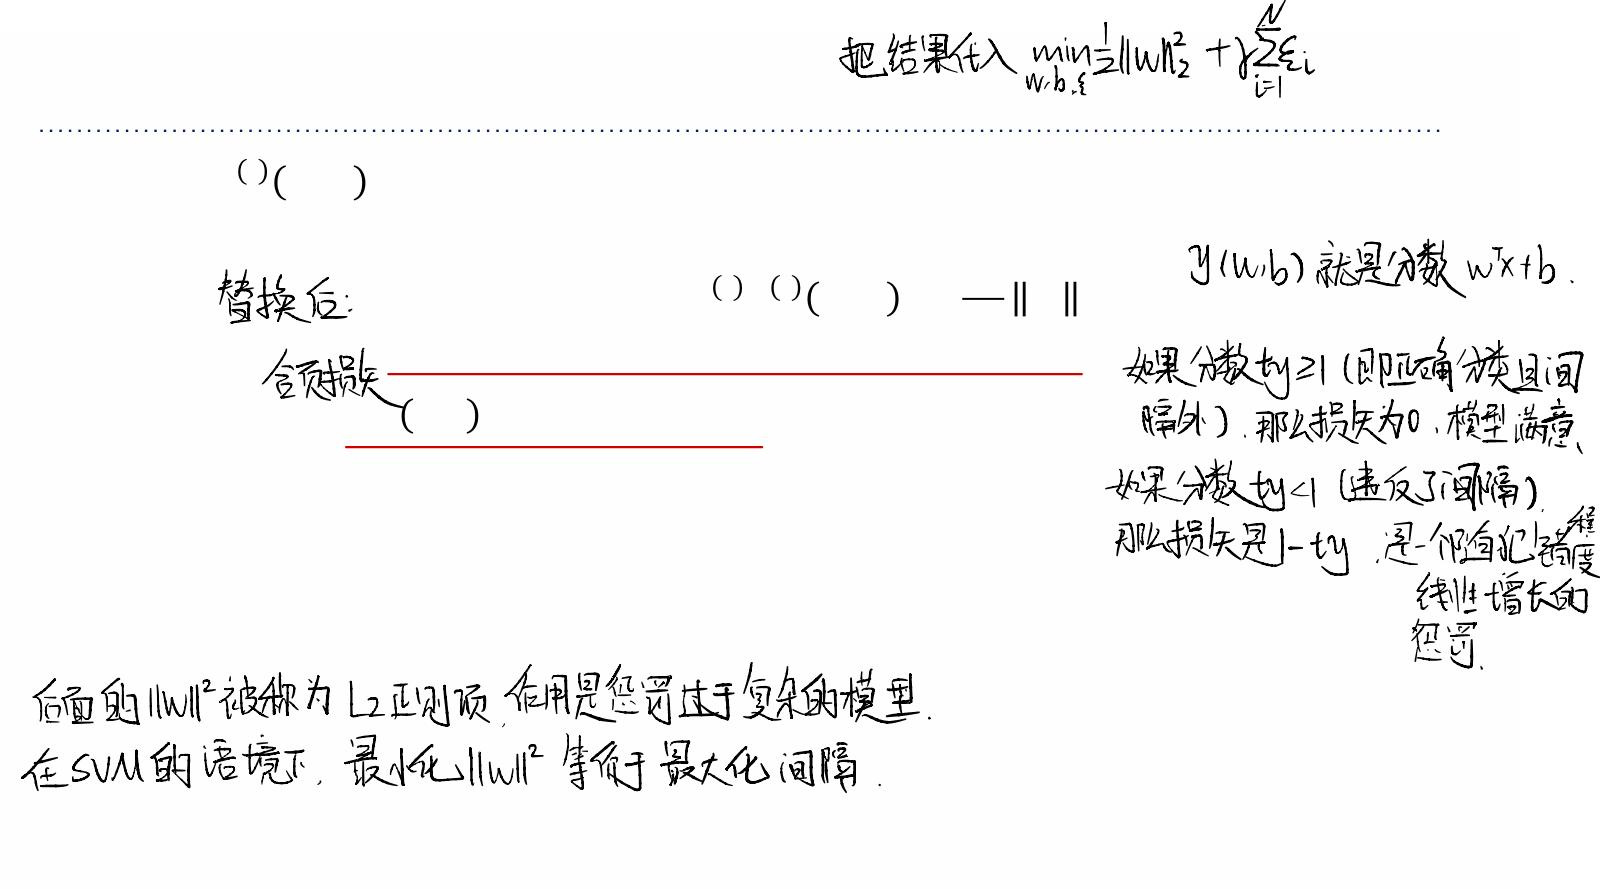 把结果代入 min w,b,ξ ½||w||²₂ + γ∑ᵢ₌₁ᴺ ξᵢ
( ) ( )
替换后: ( ) ( ) ( ) — ‖ ‖
y(w,b) 就是分数 wᵀx+b.
合页损失
( )
如果分数ty≥1(即正确分类且间
隔外),那么损失为0,模型满意、
如果分数ty<1(违反了间隔),
那么损失是1-ty,是一个随犯错程度
线性增长的
惩罚.
后面的||w||²被称为L₂正则项,作用是惩罚过于复杂的模型.
在SVM的语境下,最小化||w||²等价于最大化间隔.